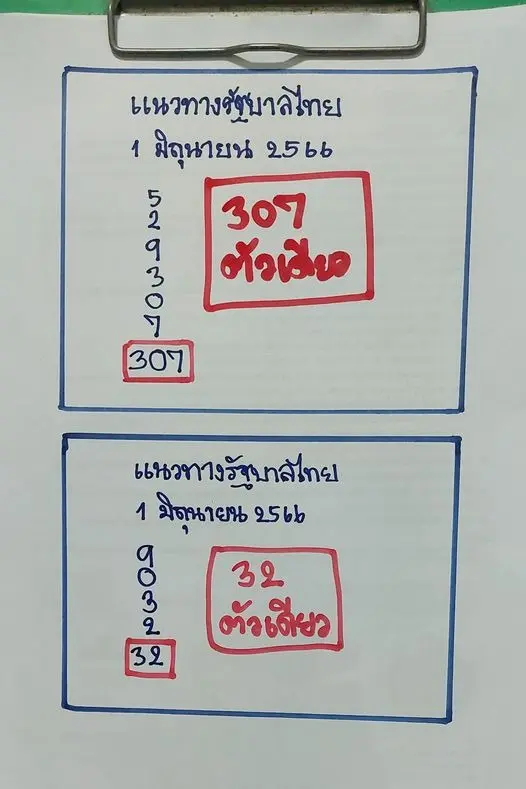 แนวทางรัฐบาลไทย
1 มิถุนายน 2566
5
2
9
3
0
7
307
307
ตัวเดียว
แนวทางรัฐบาลไทย
1 มิถุนายน 2566
9
0
3
2
32
32
ตัวเดียว